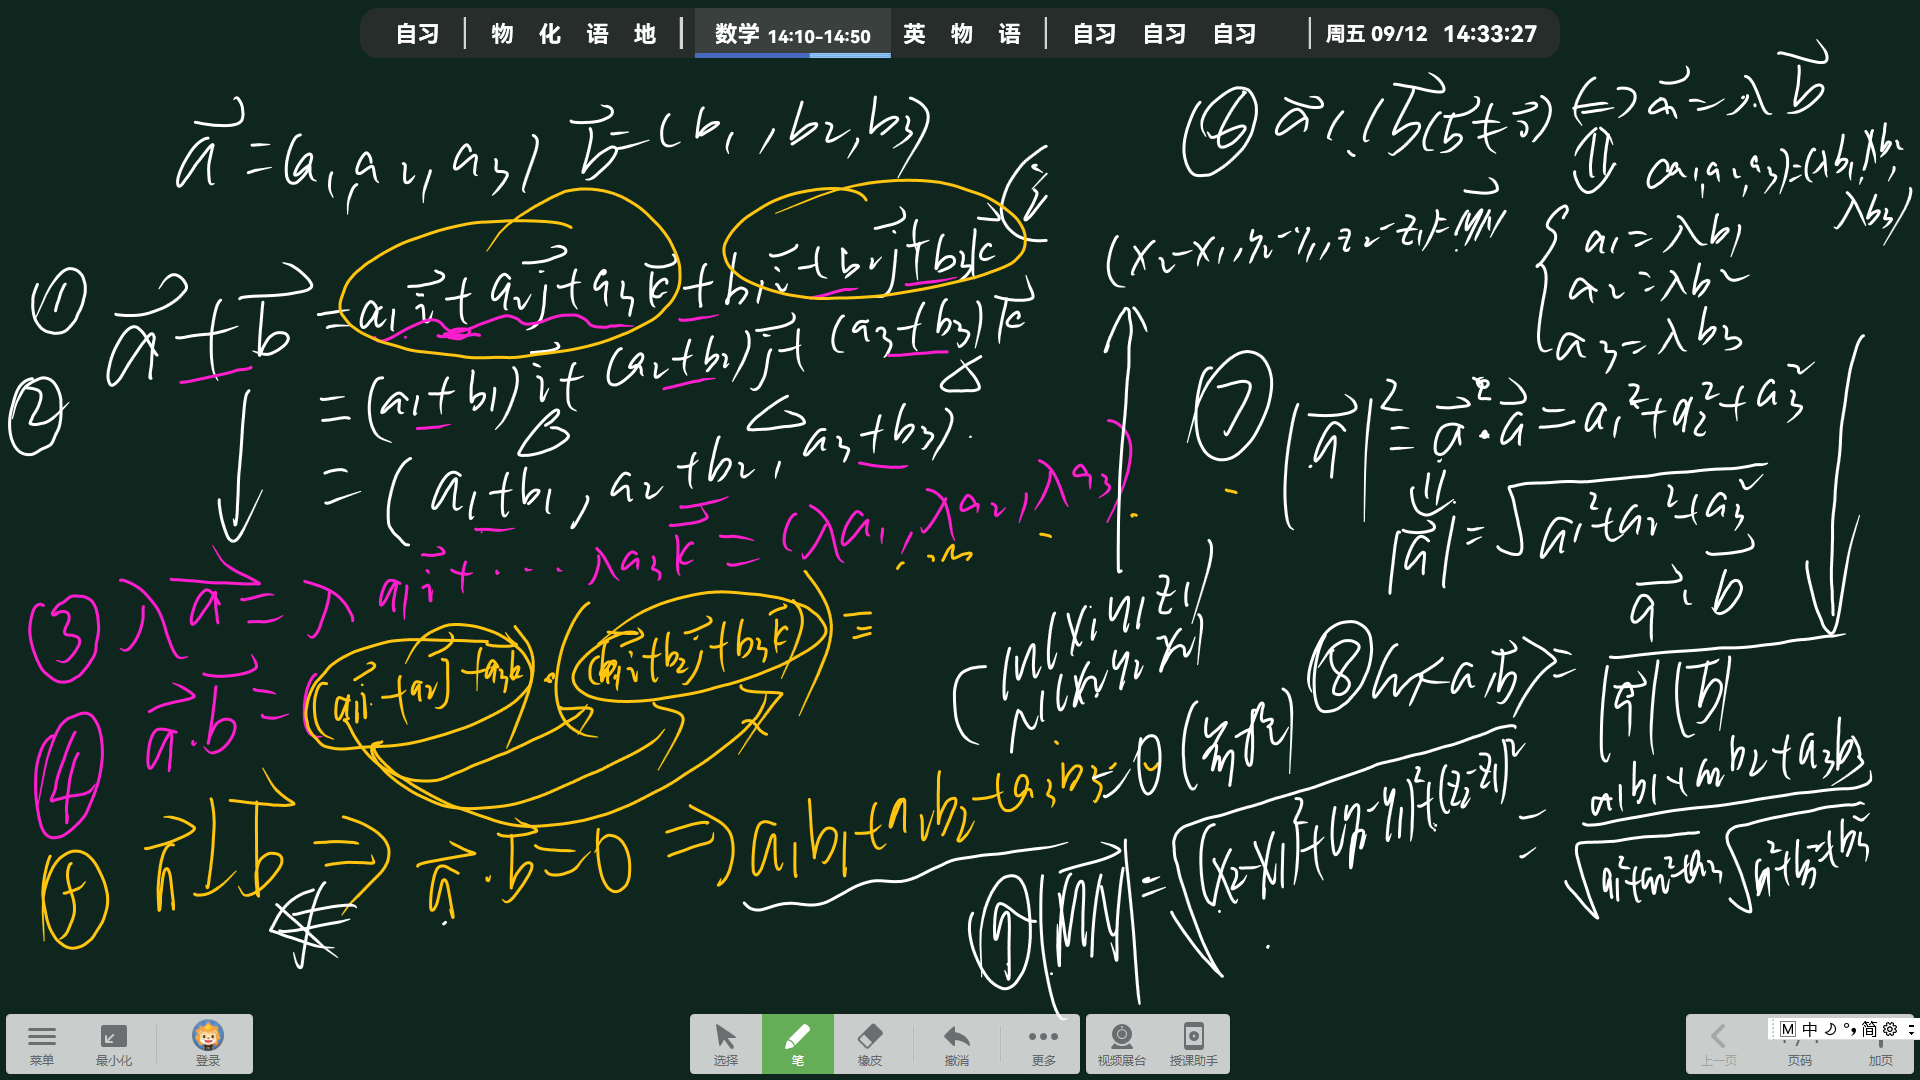 自习 物 化 语 地 数学 14:10-14:50 英 物 语 自习 自习 自习 周五 09/12 14:33:27
a⃗=(a₁,a₂,a₃) b⃗=(b₁,b₂,b₃)
① a⃗+b⃗=a₁i⃗+a₂j⃗+a₃k⃗+b₁i⃗+b₂j⃗+b₃k⃗
② =(a₁+b₁)i⃗+(a₂+b₂)j⃗+(a₃+b₃)k⃗
=(a₁+b₁,a₂+b₂,a₃+b₃).
③ λa⃗=λa₁i⃗+···λa₃k⃗=(λa₁,λa₂,λa₃)
④ a⃗·b⃗=(a₁i⃗+a₂j⃗+a₃k⃗)·(b₁i⃗+b₂j⃗+b₃k⃗)=
⑤ a⃗⊥b⃗⇒a⃗·b⃗=0⇒a₁b₁+a₂b₂+a₃b₃=0
⑥ a⃗//b⃗(b⃗≠0⃗)⇔a⃗=λb⃗
⇕ (a₁,a₂,a₃)=(λb₁,λb₂,
λb₃)
a₁=λb₁
a₂=λb₂
a₃=λb₃
(x₂-x₁,y₂-y₁,z₂-z₁)=MN⃗
M(x₁y₁z₁)
N(x₂y₂z₂)
⑦ |a⃗|²=a⃗·a⃗=a₁²+a₂²+a₃²
⇓
|a⃗|=√(a₁²+a₂²+a₃²)
⑧ <a,b⃗>=a⃗·b⃗/|a⃗||b⃗|
=a₁b₁+a₂b₂+a₃b₃
⑨ |MN⃗|=√(x₂-x₁)²+(y₂-y₁)²+(z₂-z₁)²
菜单 最小化 登录 选择 笔 橡皮 撤消 更多 视频展台 授课助手 上一页 页码 加页
M 中 简